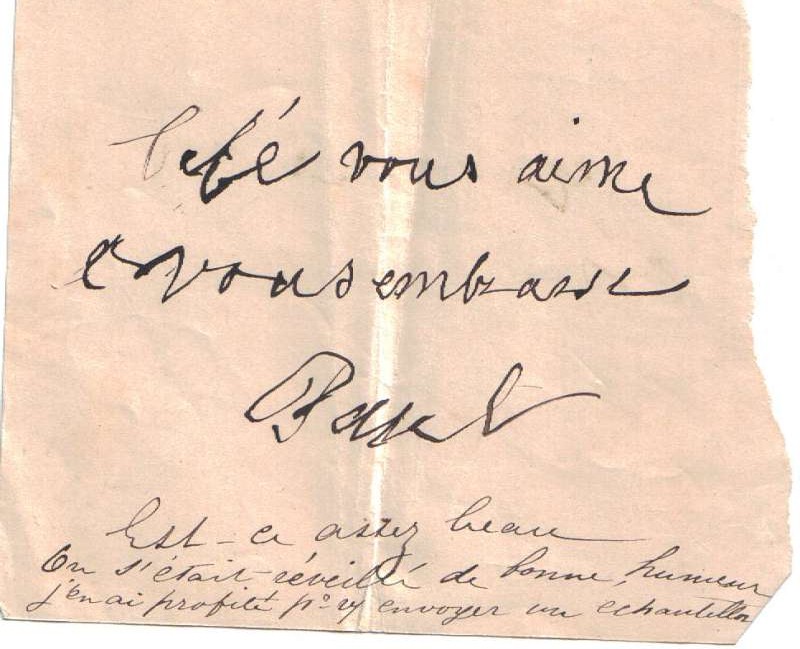 bébé vous aime
et vous embrasse
Est-ce assez beau
On s'était réveillé de bonne humeur
j'en ai profité pr envoyer un echantillon